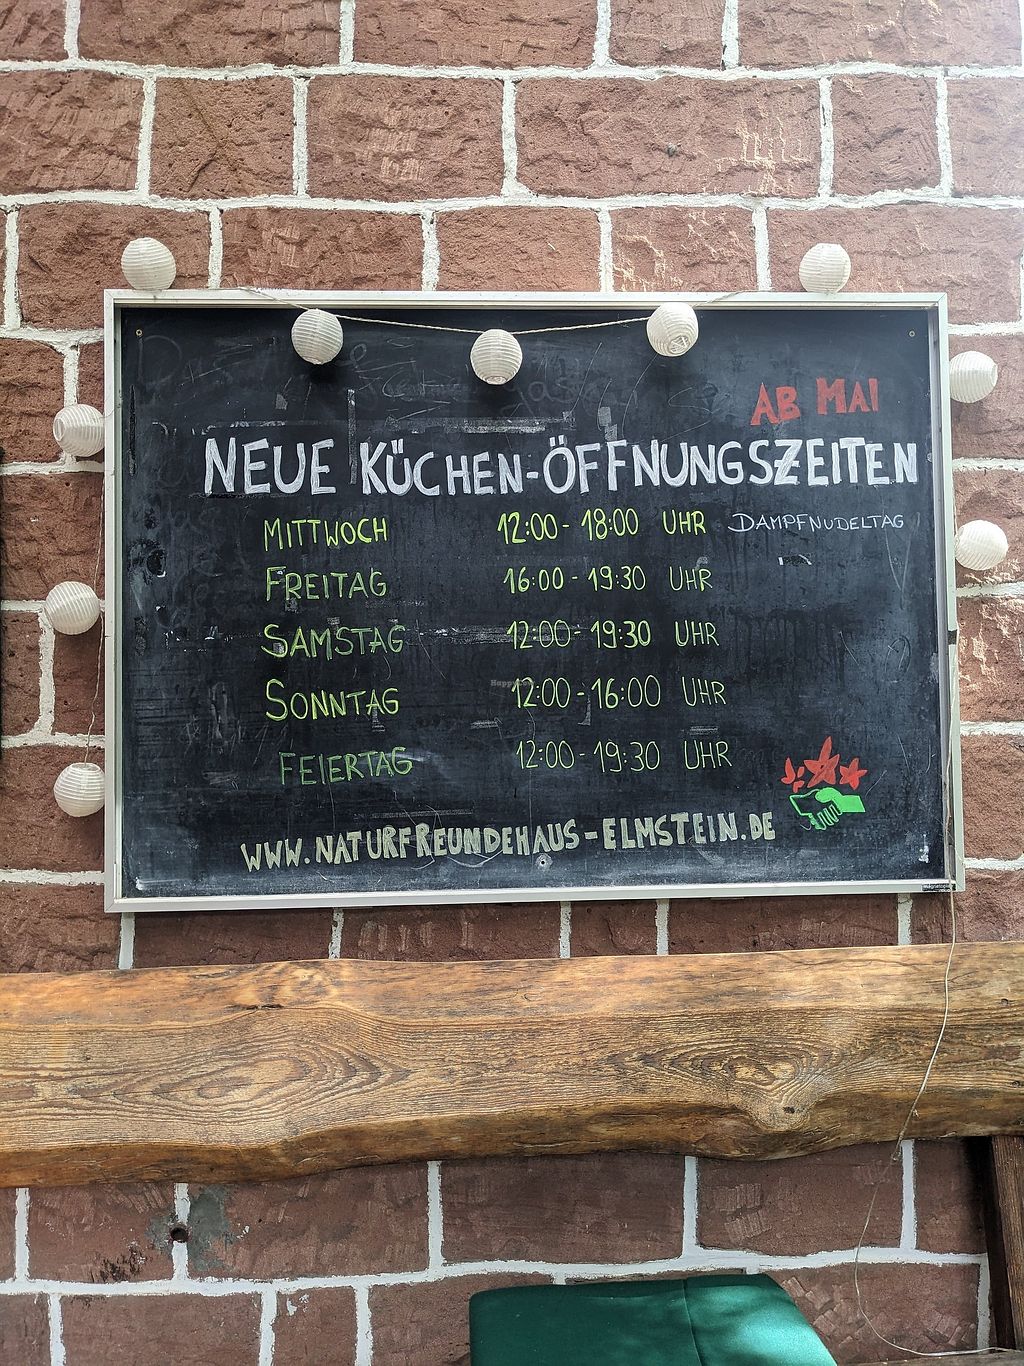 AB MAI
NEUE KÜCHEN-ÖFFNUNGSZEITEN
MITTWOCH 12:00 - 18:00 UHR DAMPFNUDELTAG
FREITAG 16:00 - 19:30 UHR
SAMSTAG 12:00 - 19:30 UHR
SONNTAG 12:00 - 16:00 UHR
FEIERTAG 12:00 - 19:30 UHR
WWW.NATURFREUNDEHAUS-ELMSTEIN.DE